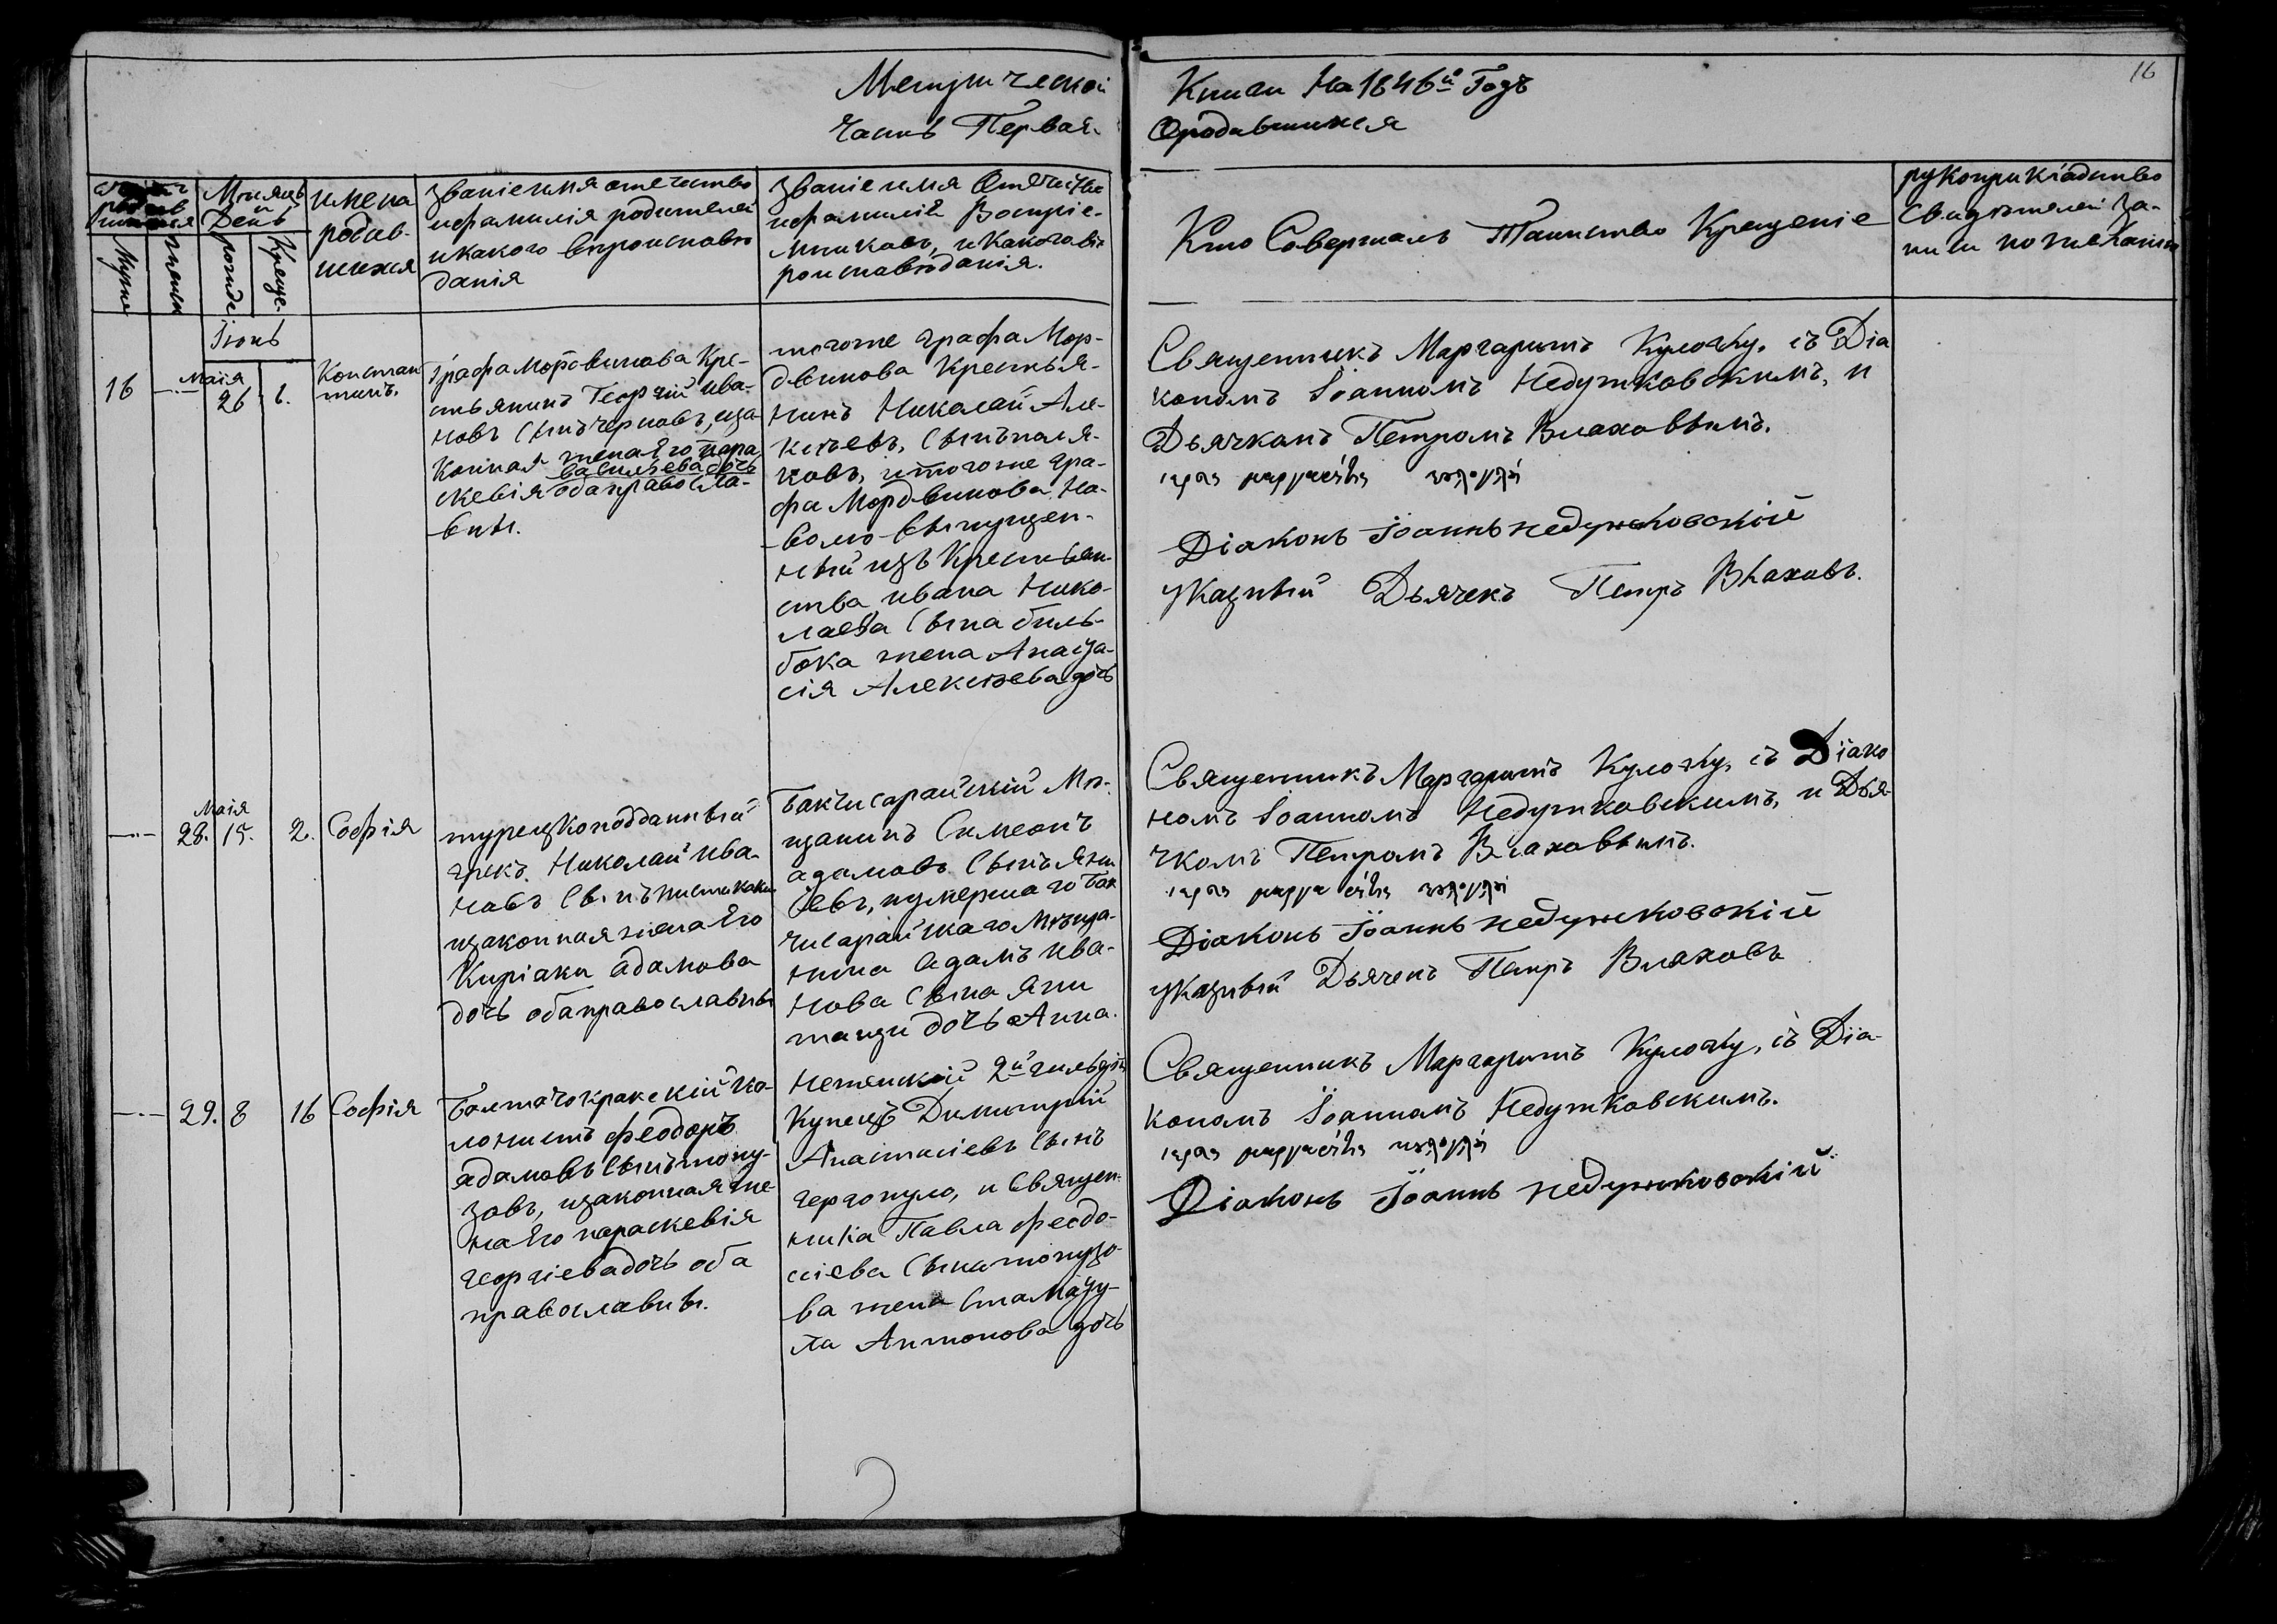 16
Метрической Книги На 1846й Годъ
Часть Первая Ородившихся
Мѣсяцъ и День
Мужск
женск
рожде
Креще.
имена родив-
шихся
званіе имя отечество
ифамилія родителей
икакого вѣроисповѣ
данія
званіе имя Отечество
ифамилія Воспріе-
мниковъ, икакого вѣ
роисповѣданія.
Кто Совершалъ Таинство Крещеніе
рукоприкладство
Свидѣтелей за-
писи по желанію
Іюнь
16
Маія
26
1.
Констан
тинъ.
Графа Мордвинова Кре-
стьянинъ Георгій Ива-
новъ Сынъ черновъ, иза
конная жена Его пара
васильева дочь
скевія оба правосла-
вны.
тогоже графа Мор-
двинова Крестья-
нинъ Николай Але-
ксѣевъ, Сынъ поля-
ковъ, итогоже гра-
фа Мордвинова На-
волю выпущен-
ный изъ Крестьян-
ства ивана Нико-
лаева Сына биль-
бока жена Анаста-
сія Алексѣева дочь
Священникъ Маргаритъ Кулоглу, съ Діа
кономъ Іоанномъ Недужковскимъ, и
Дьячкомъ Петромъ Влаховымъ.
Діаконъ Іоаннъ недужковскій
указный Дьячекъ Петръ Влаховъ.
28.
Маія
15.
2.
Софія
турецкоподданный
грекъ Николай Ива-
новъ Сынъ
изаконная жена Его
Киріаки адамова
дочь оба православны
Бакчисарайскій Мѣ-
щанинъ Симеонъ
адамовъ Сынъ
евъ, иумершаго Бак
чисарайскаго Мѣща-
нина Адамъ ива-
нова Сына Яни
танзи дочь Анна.
Священникъ Маргаритъ Кулоглу, съ Діако
номъ Іоанномъ Недужковскимъ, и Дья
чкомъ Петромъ Влаховымъ.
Діаконъ Іоаннъ недужковскій
указный Дьячекъ Петръ Влаховъ
29.
8
16
Софія
Балтачокракскій ко-
лонистъ феодоръ
адамовъ Сынъ топу-
зовъ, изаконная же-
на Его параскевія
георгіева дочь оба
православны.
Нежинскій 2й гильдіи
Купецъ Димитрій
Анастасіевъ Сынъ
чергопуло, и Священ-
ника Павла феодо-
сіева Сына топузо-
ва жена Стамату-
ла Антонова дочь
Священникъ Маргаритъ Кулоглу, съ Діа-
кономъ Іоанномъ Недужковскимъ.
Діаконъ Іоаннъ недужковскій